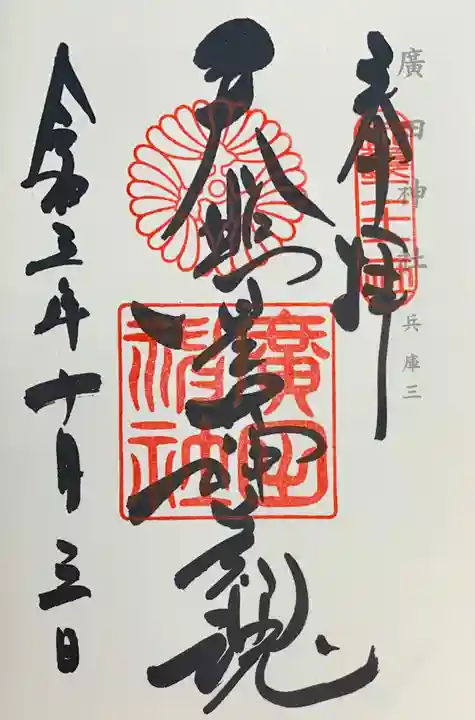 廣田神社 兵庫三
奉拝
天照
魂
廣田
神社
令和三年十月三日